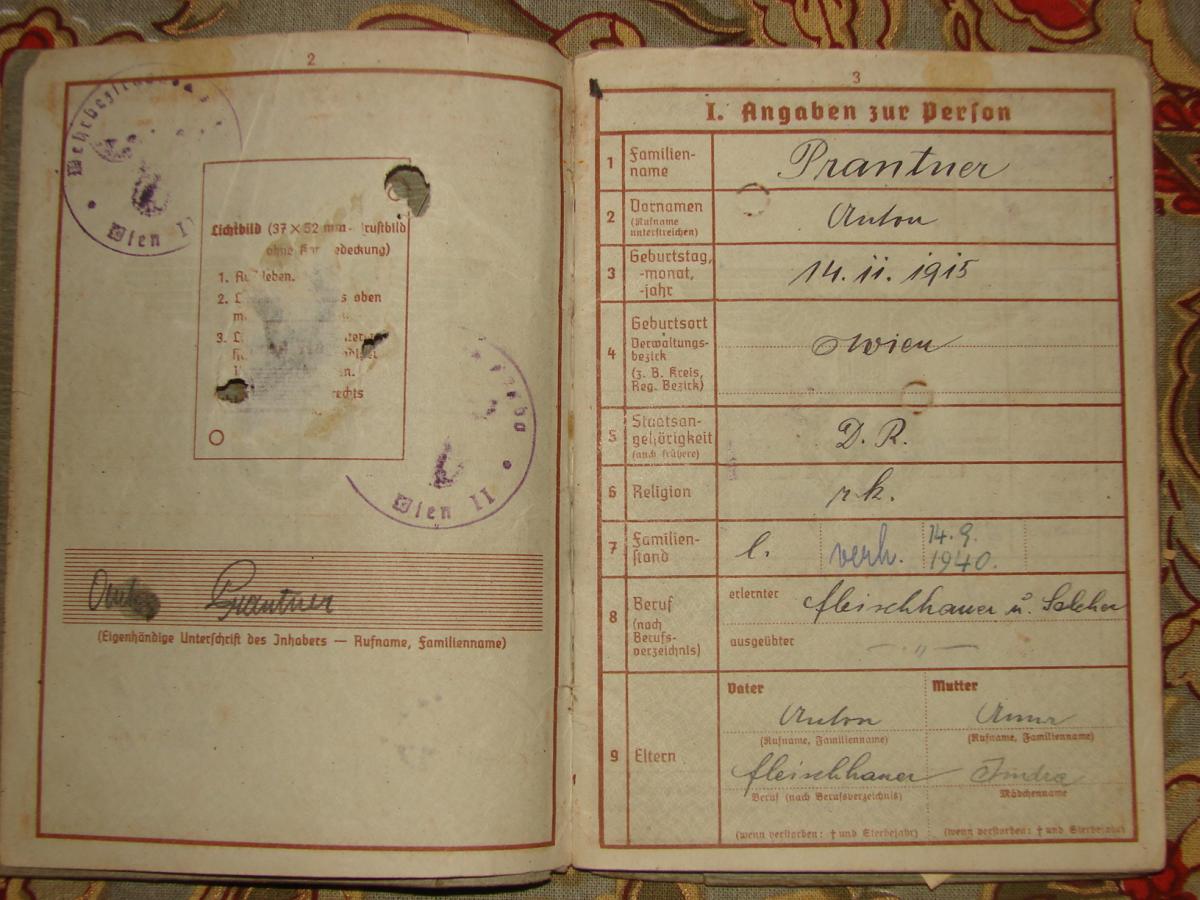 2
Wehrbezirk
Wien II
Lichtbild (37 × 52 mm- rustbild
ohne Kop edeckung)
1. Au leben.
2. s oben
3.
rechts
Wien II
Anton Prantner
(Eigenhändige Unterschrift des Inhabers — Rufname, Familienname)
3
I. Angaben zur Person
1 Familien-
name
Prantner
2 Vornamen
(Rufname
unterstreichen)
Anton
3 Geburtstag,
-monat,
-jahr
14. ii. 1915
4 Geburtsort
Verwaltungs-
bezirk
(z. B. Kreis,
Reg. Bezirk)
Wien
5 Staatsan-
gehörigkeit
(auch frühere)
D. R.
6 Religion
r. k.
7 Familien-
stand
l. verh. 14. 9.
1940.
8 Beruf
(nach
Berufs-
verzeichnis)
erlernter Fleischhauer u. Selcher
ausgeübter — „ —
9 Eltern
Vater Mutter
Anton Anna
(Rufname, Familienname) (Rufname, Familienname)
Fleischhauer Jindra
Beruf (nach Berufsverzeichnis) Mädchenname
(wenn verstorben: † und Sterbejahr) (wenn verstorben: † und Sterbejahr)